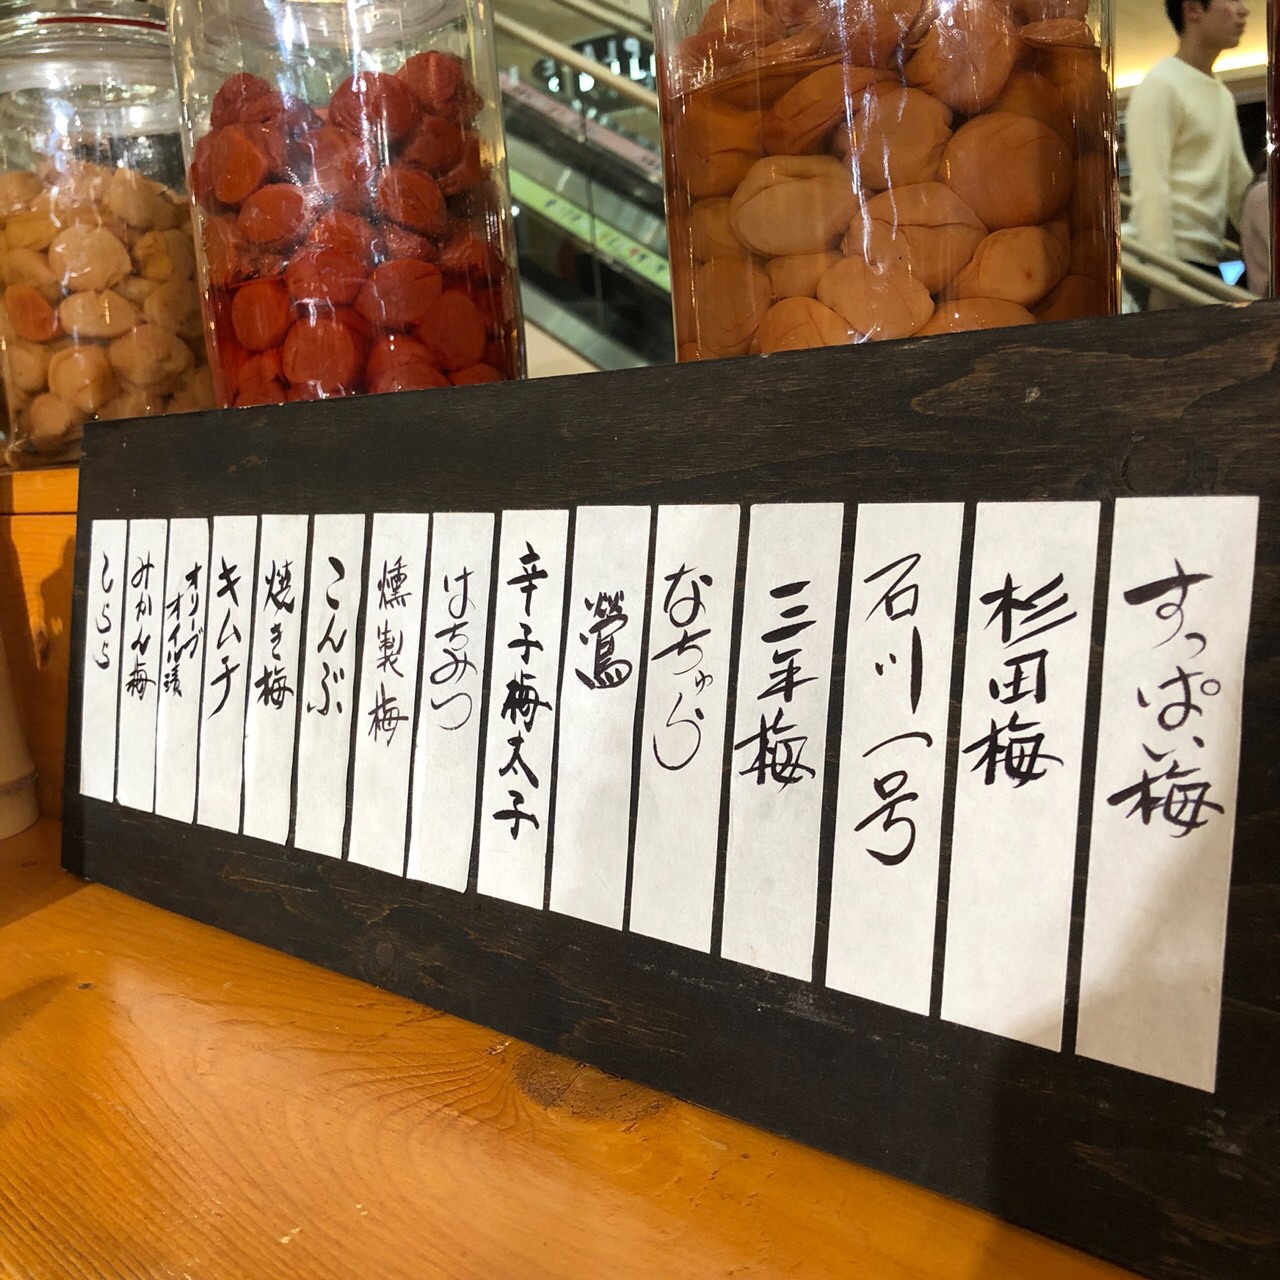 すっぱい梅
杉田梅
石川一号
三年梅
なちゅら
鶯
辛子梅太子
はちみつ
燻製梅
こんぶ
焼き梅
キムチ
オリーブ
オイル漬
みかん梅
しらら